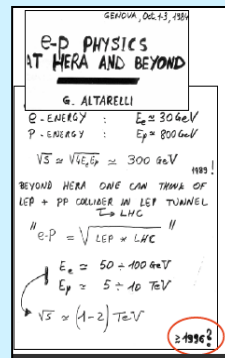 GENOVA, Oct. 1-3, 1984
e-p PHYSICS
AT HERA AND BEYOND
G. ALTARELLI
e - ENERGY : Ee ≃ 30 GeV
P - ENERGY : Ep ≃ 800 GeV
√S ≃ √4EeEp ≃ 300 GeV
1989!
BEYOND HERA ONE CAN THINK OF
LEP + PP COLLIDER IN LEP TUNNEL
↳ LHC
"e-P = √LEP * LHC"
Ee ≃ 50 ÷ 100 GeV
Ep ≃ 5 ÷ 10 TeV
√S ≃ (1-2) TeV
≥1996?